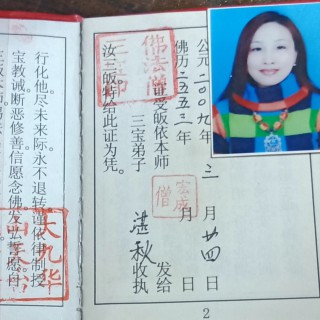 公元二〇〇九年 三月廿四日
佛历二五五三年 月 日
证受皈依本师 发给
三宝弟子 湛秋 收执
汝三皈特给此证为凭。
佛法僧
三宝
僧
2
行化他尽未来际永不退转谨依律制授
宝教诫断恶修善信愿念佛
大九华